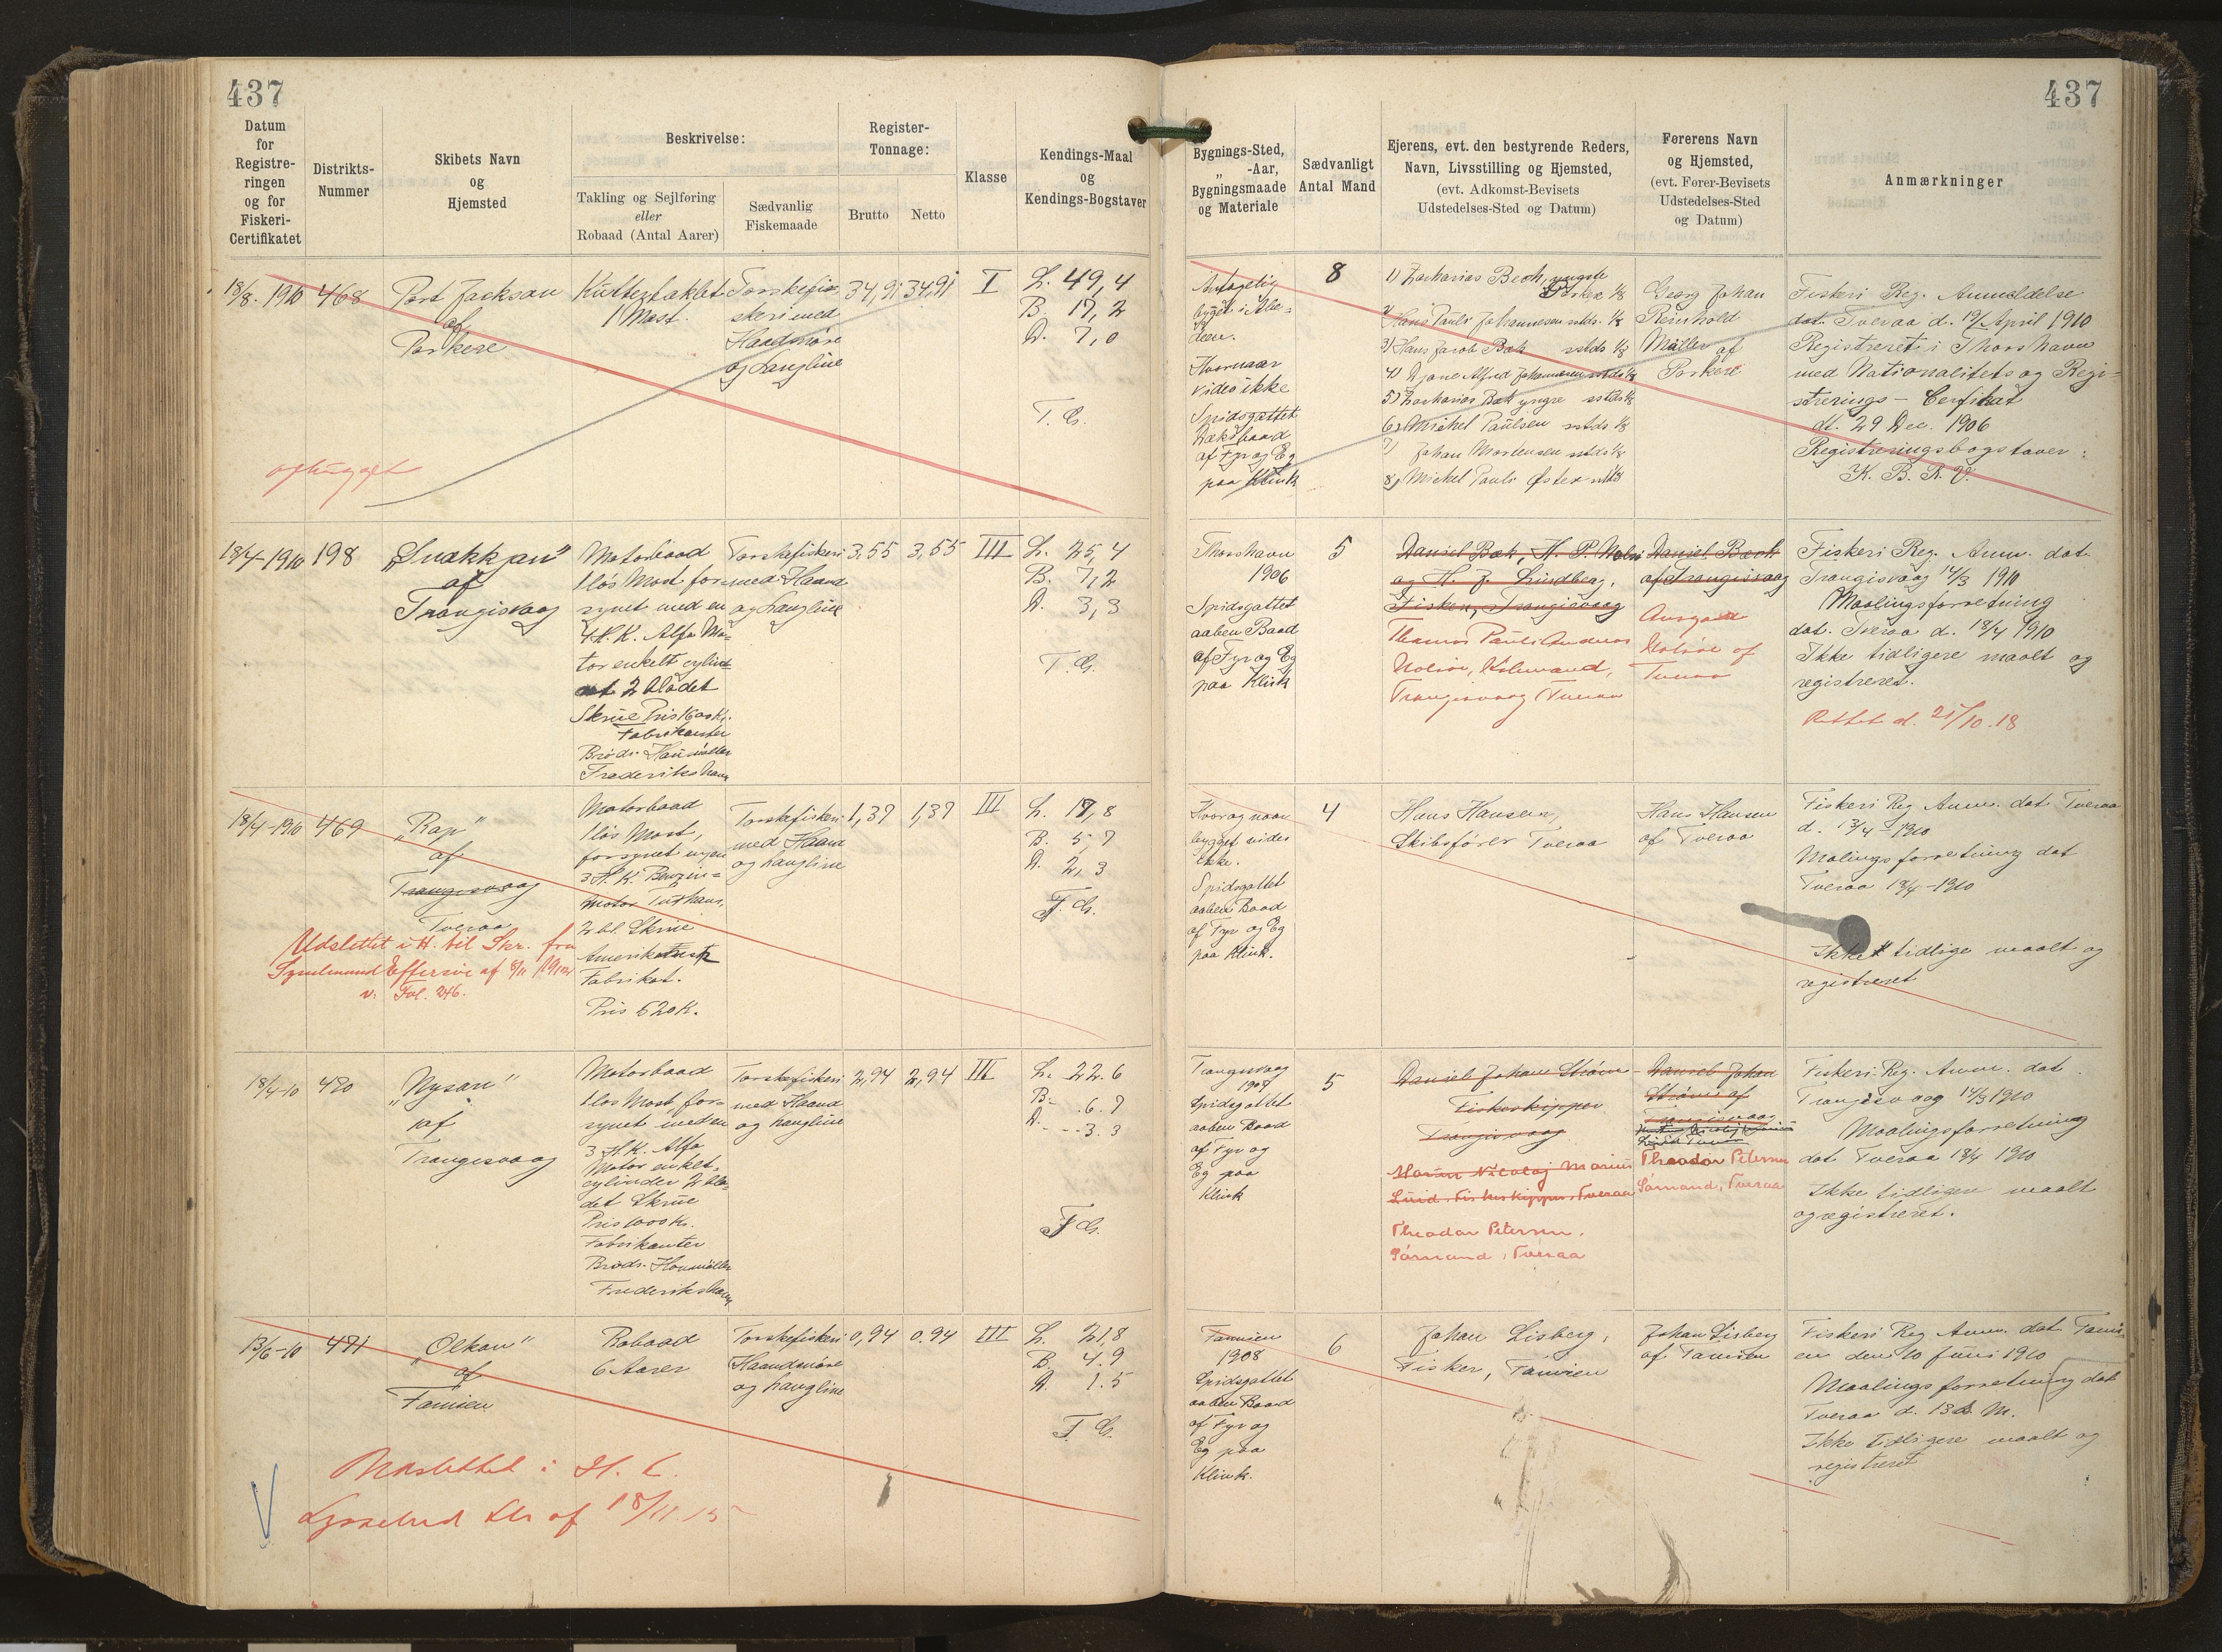 437
437
Datum
for
Registre-
ringen
og for
Fiskeri-
Certifikatet
Distrikts-
Nummer
Skibets Navn
og
Hjemsted
Beskrivelse:
Takling og Sejlføring
eller
Robaad (Antal Aarer)
Sædvanlig
Fiskemaade
Register-
Tonnage:
Brutto
Netto
Klasse
Kendings-Maal
og
Kendings-Bogstaver
Bygnings-Sted,
„ -Aar,
Bygningsmaade
og Materiale
Sædvanligt
Antal Mand
Ejerens, evt. den bestyrende Reders,
Navn, Livsstilling og Hjemsted,
(evt. Adkomst-Bevisets
Udstedelses-Sted og Datum)
Førerens Navn
og Hjemsted,
(evt. Fører-Bevisets
Udstedelses-Sted
og Datum)
Anmærkninger
18/8. 1910
468
Port Jackson
af
Porkere
Kuttertaklet
1 Mast.
Torskefi-
skeri med
Haandsnøre
og Langline
34,91
34,91
I
L. 49,4
B. 17,2
D. 7,0
T. G.
ophugget
Antagelig
bygt i Abe-
deen.
Hvornaar
vides ikke
Spidsgattet
Dæksbaad
af Fyr og Eg
paa Klink
8
1) Zacharias Bech, yngste
Porkere 1/8
2) Hans Pauli Johannesen sstds. 1/8
3) Hans Jacob Bæk sstds 1/8
4) Djone Alfred Johannesen sstds 1/8
5) Zacharias Bæk yngre sstds 1/8
6) Michel Paulsen sstds 1/8
7) Johan Mortensen sstds 1/8
8) Michel Pauli Øster sstds 1/8
Georg Johan
Reinhold
Müller af
Porkere
Fiskeri Reg. Anmeldelse
dat. Tveraa d. 19/ April 1910
Registreret i Thorshavn
med Nationalitets og Regi-
strerings - Cerfikat
dt. 29 Dec. 1906
Registreringsbogstaver:
K. B. R. V.
18/4-1910
198
„Snækkjan”
af
Trangisvaag
Motorbaad
1 løs Mast for-
synet med en
4 H.K. Alfa Mo-
tor enkelt cylind
2 bladet
Skrue Pris 1600 Kr.
Fabrikanter
Brødr. Houmøller
Frederikshavn
Torskefiskeri
med Haand
og Langline
3,55
3,55
III
L. 25,4
B. 7,2
D. 3,3
T. G.
Thorshavn
1906
Spidsgattet
aaben Baad
af Fyr og Eg
paa Klink
5
Daniel Bæk, H. P. Nolsø
og H. J. Lindberg,
Fiskere, Trangisvaag
Thomas Pauli Andreas
Nolsøe, Købmand,
Trangisvaag (Tveraa
Daniel Bæch
af Trangisvaag
Nolsøe af
Tveraa
Fiskeri Reg. Anm. dat.
Trangisvaag 14/3 1910
Maalingsforretning
dat. Tveraa d. 18/4 1910
Ikke tidligere maalt og
registreret.
Rettet d. 25/10.18
18/4-1910
469
„Rap”
af
Trangisvaag
Tveraa
Motorbaad
1 løs Mast,
forsynet m en
3 H.K. Benzin-
Motor
2 bl. Skrue
Amerikansk
Fabrikat.
Pris 620 K.
Torskefiskeri
med Haand
og Langline
1,37
1,37
III
L. 17,8
B. 5,7
D. 2,3
T. G.
Udslettet i H. til Skr. fra
Sysselmand Effersøe af 8/11 1912
v. Fol. 246.
Hvor og naar
bygget vides
ikke.
Spidsgattet
aaben Baad
af Fyr og Eg
paa Klink.
4
Hans Hansen,
Skibsfører Tveraa
Hans Hansen
af Tveraa
Fiskeri Reg Anm. dat Tveraa
d. 13/4-1910
Malingsforretning dat
Tveraa 18/4-1910
Ikke tidlige maalt og
registreret
18/4-10
470
„Nysan”
af
Trangisvaag
Motorbaad
1 løs Mast for-
synet med en
3 H.K. Alfa
Motor enkelt.
cylinder 2 bla-
det Skrue
Pris 1000 Kr.
Fabrikanter
Brødr. Houmøller
Frederikshavn
Torskefiskeri
med Haand
og Langline
2,94
2,94
III
L. 22.6
B. 6.7
D. 3.3
T. G.
Trangisvaag
1907
Spidsgattet
aaben Baad
af Fyr og
Eg paa
Klink
5
Daniel Johan Strøm
Fiskeskipper
Trangisvaag
Nicolaj Marius
Fiskeskipper, Tveraa
Theodor Petersen.
Sømand, Tveraa
Daniel Johan
Strøm af
Trangisvaag
Theodor Petersen
Sømand, Tveraa
Fiskeri Reg. Anm. dat.
Trangisvaag 14/3 1910
Maalingsforretning
dat Tveraa 18/4 1910
Ikke tidligere maalt
og registreret.
13/6-10
471
„Olkan”
af
Famien
Robaad
6 Aarer
Torskefiskeri
Haandsnøre
og Langline
0,94
0.94
III
L. 21,8
B. 4.9
D. 1.5
T. G.
Udslettet i H. t.
Sysselmd Skr af 18/11.15
Famien
1908
Spidsgattet
aaben Baad
af Fyr og
Eg paa
Klink.
6
Johan Lisberg,
Fisker, Famien
Johan Lisberg
af Famien
Fiskeri Reg Anm. dat Fami-
en den 10 Juni 1910
Maalingsforretning dat
Tveraa d. 13 d. M.
Ikke tidligere maalt og
registreret